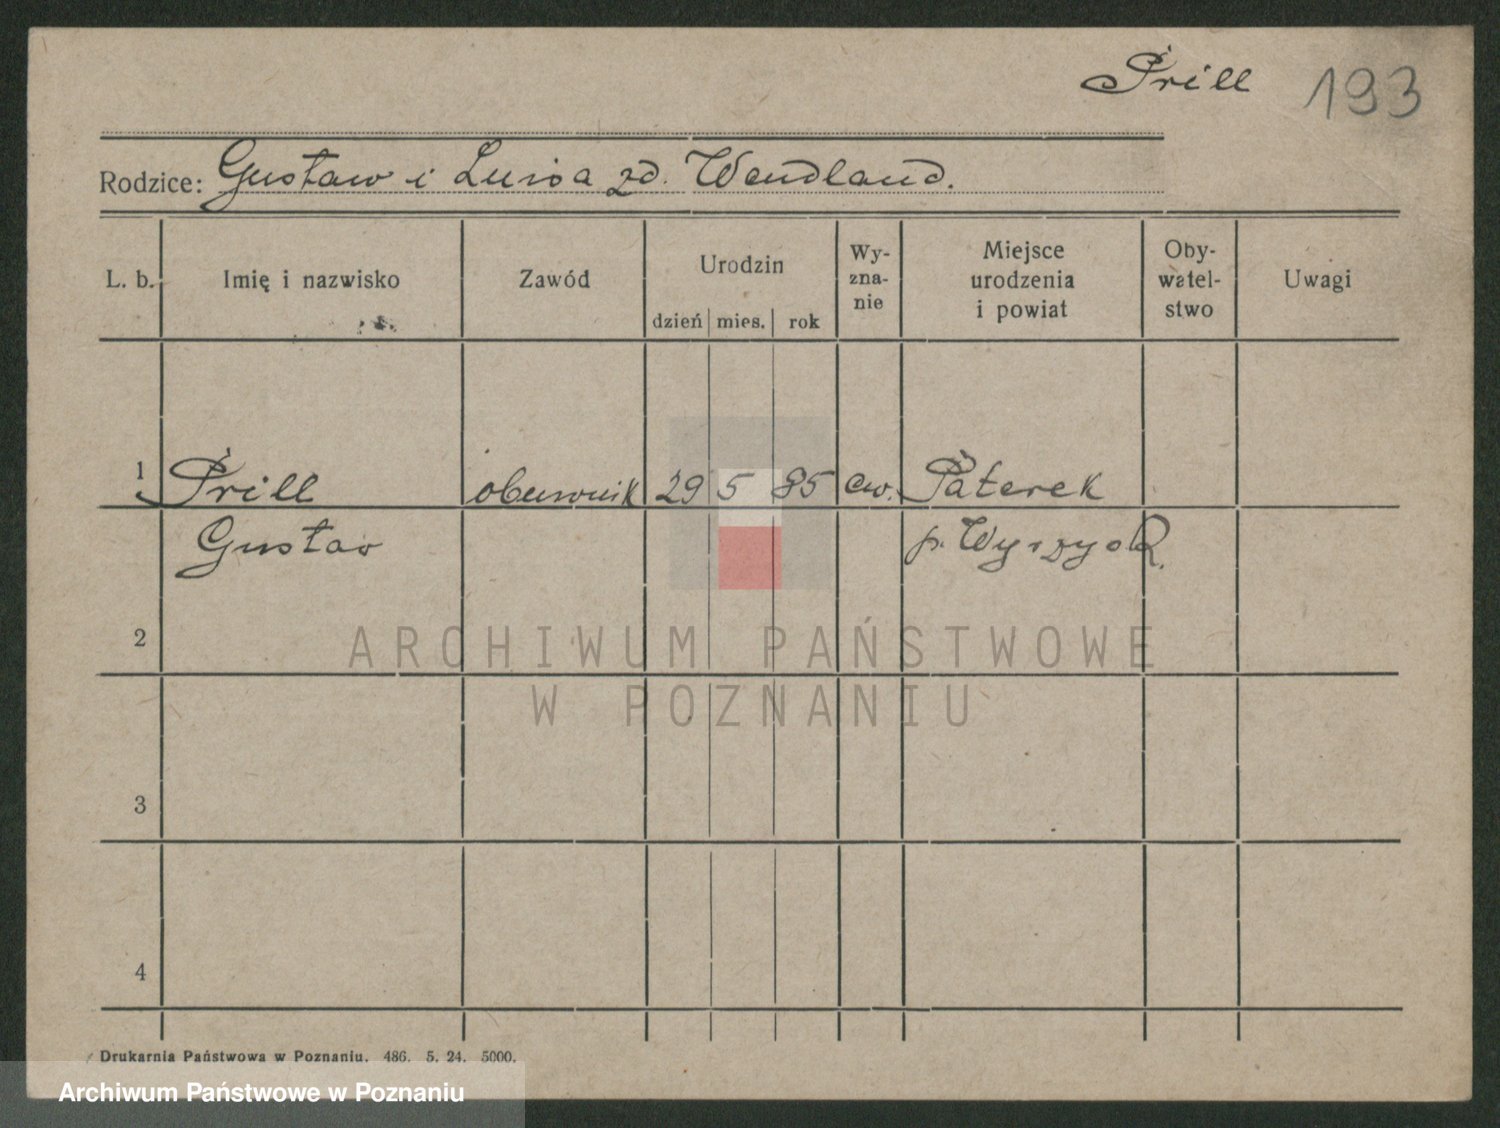 Prill 193
Rodzice: Gustaw i Luisa zd. Wendland.
L. b. Imię i nazwisko Zawód Urodzin dzień mies. rok Wy-zna-nie Miejsce urodzenia i powiat Oby-watel-stwo Uwagi
1 Prill obuwnik 29 5 85 ew. Paterek
Gustav p. Wyrzysk.
2
ARCHIWUM PAŃSTWOWE
W POZNANIU
3
4
Drukarnia Państwowa w Poznaniu. 486. 5. 24. 5000.
Archiwum Państwowe w Poznaniu